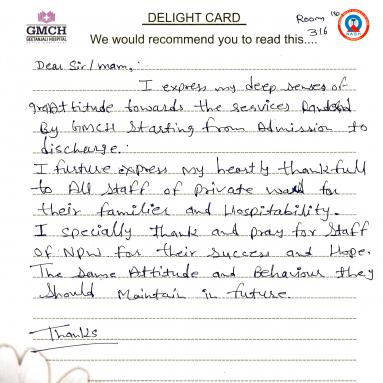 GMCH
GEETANJALI HOSPITAL
DELIGHT CARD
Room No
316
NABH
We would recommend you to read this....
Dear Sir/mam,:
I express my deep senses of
grattitude towards the services
By GMCH Starting from Admission to
discharge.:
I furture express my hearty thankfull
to All Staff of private ward for
their families and Hospitability.
I specially Thank and pray for Staff
Of NPW for their Success and Hope.
The Same Attitude and Behaviour they
Should Maintain in future.
Thanks